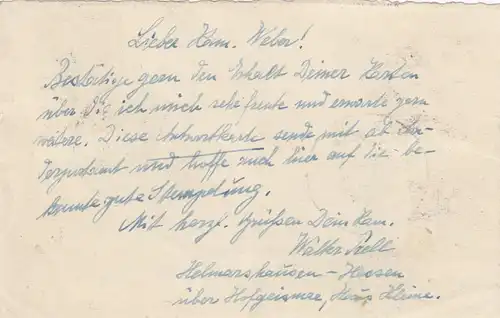 Lieber Kam. Weber!
Bestätige gern den Erhalt Deiner Karten
über die ich mich sehr freute und erwarte gern
weitere. Diese Antwortkarte sende mit ab
derpostamt und hoffe auch hier auf die be-
kannte gute Stempelung.
Mit herzl. Grüßen Dein Kam.
Walter
Helmarshausen - Hessen
über Hofgeismar, Haus Kleine.